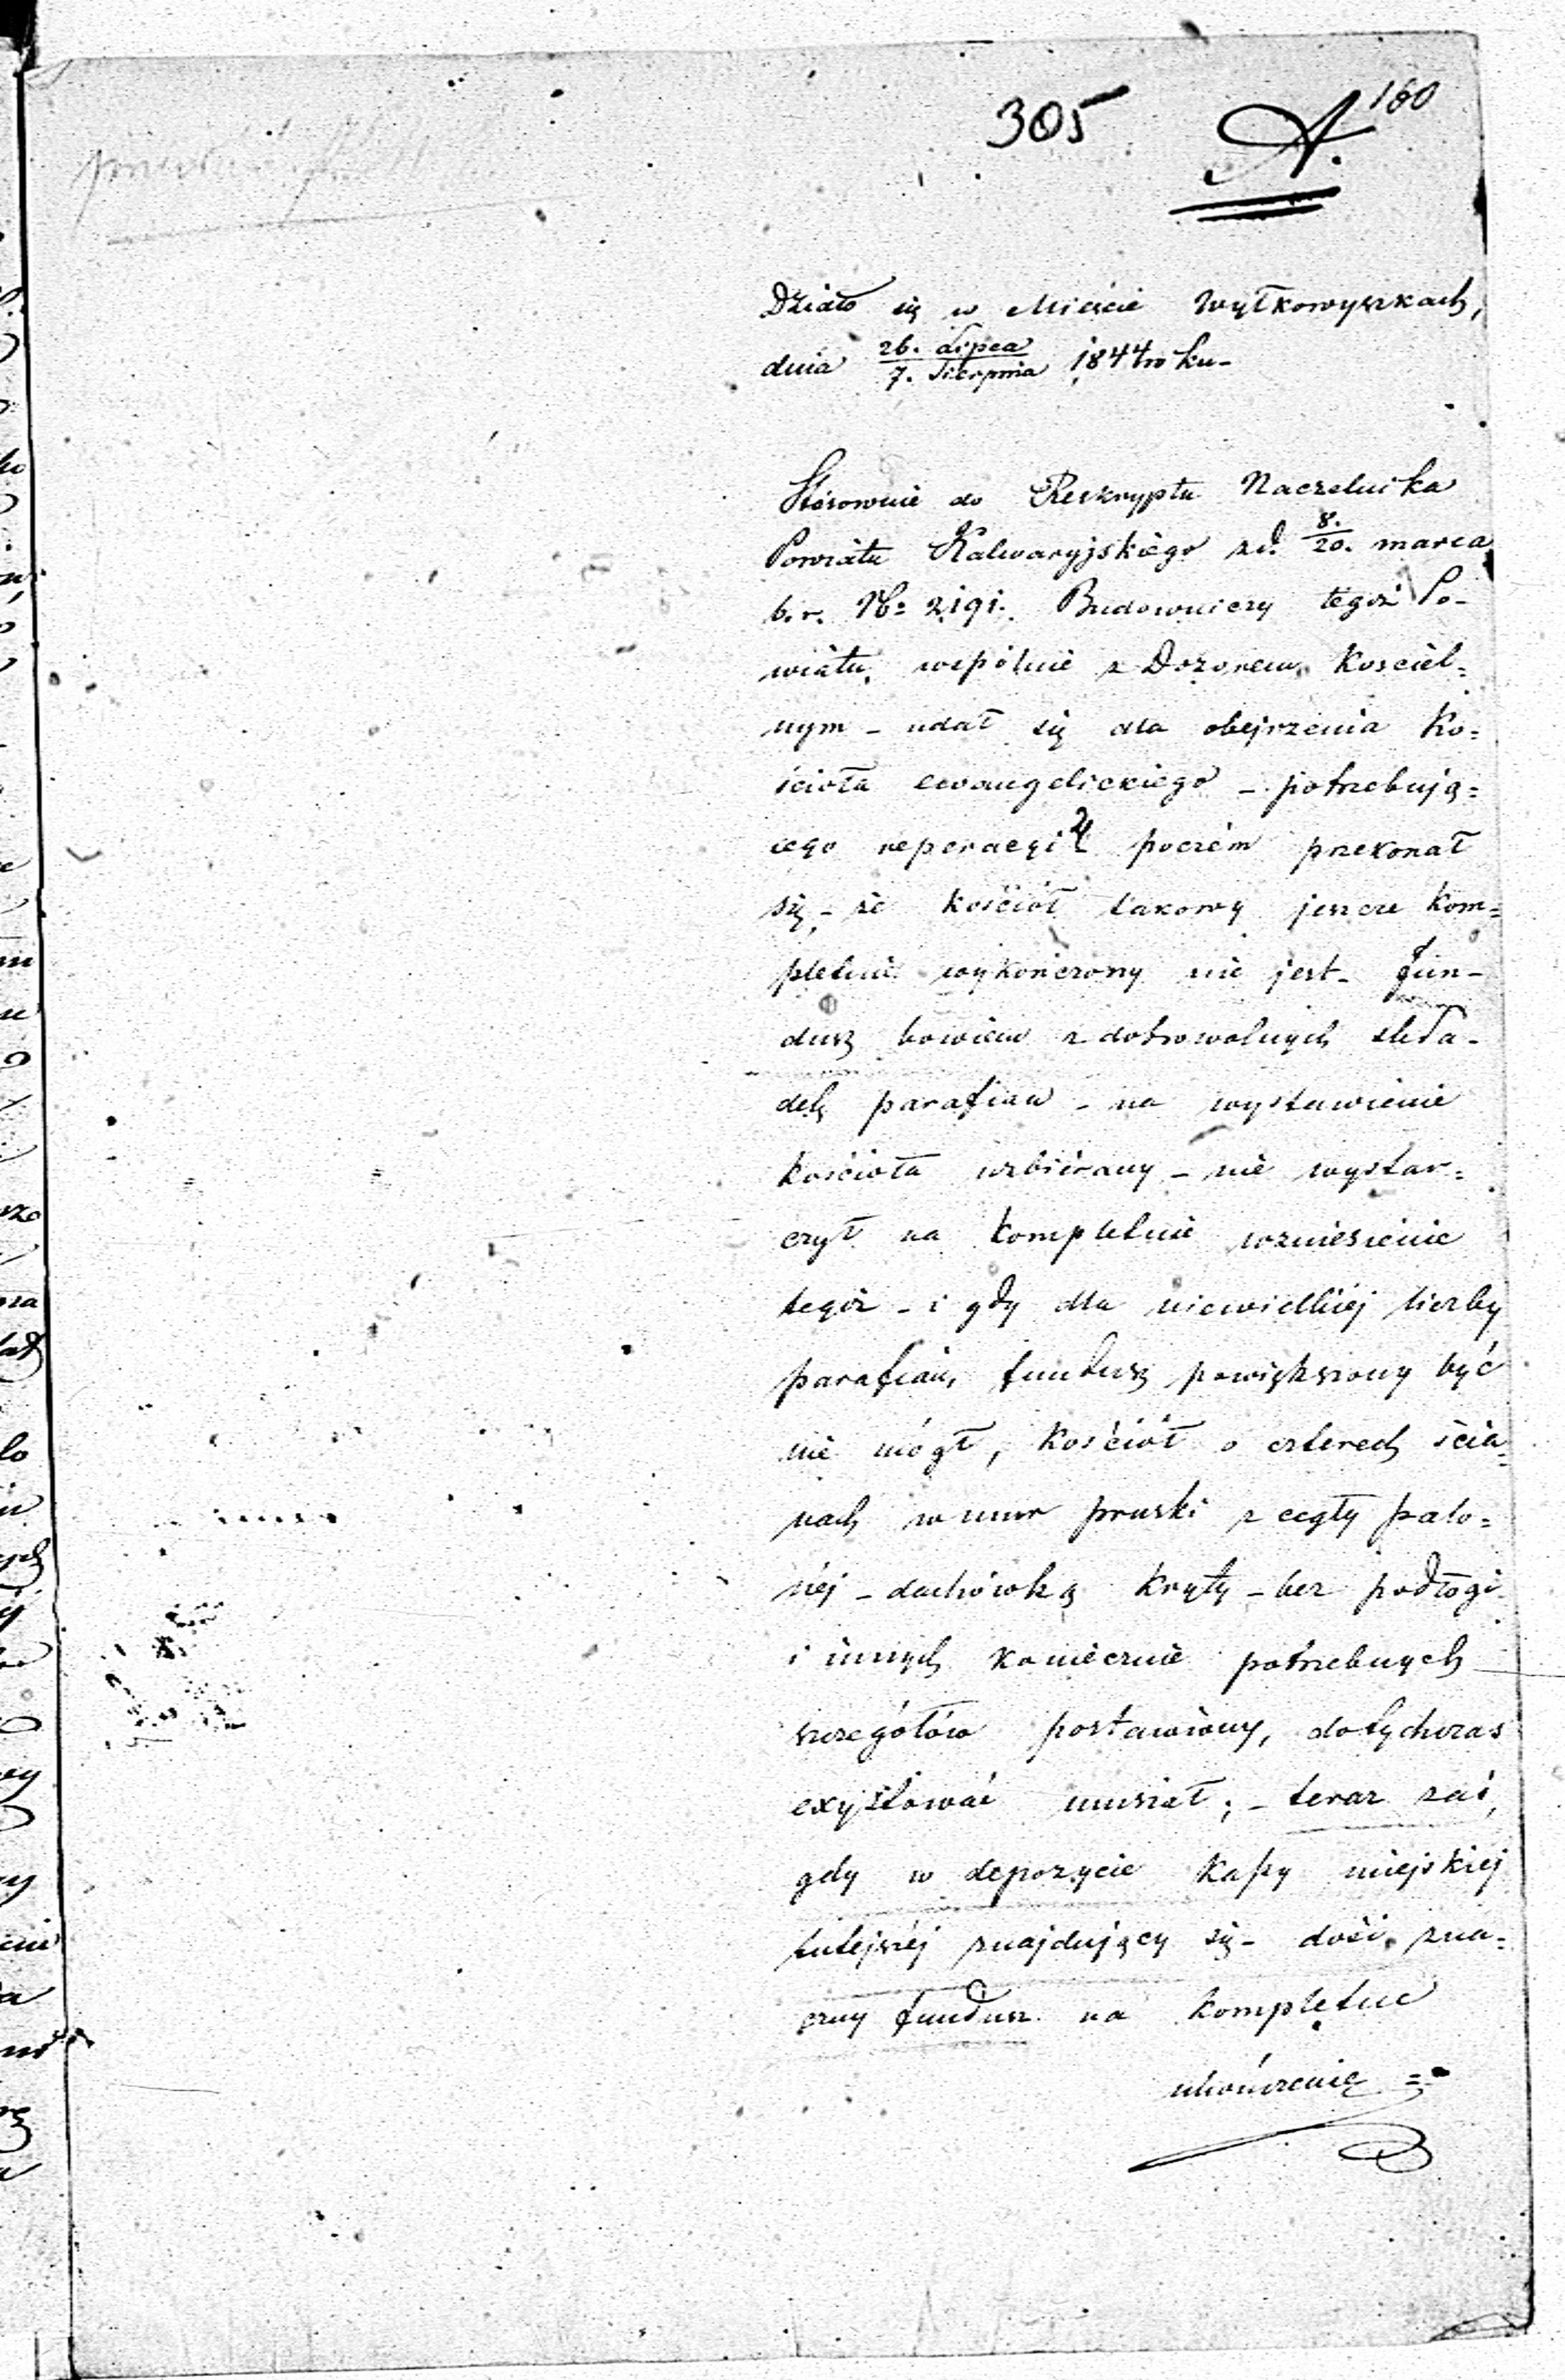 305
A.
160
Działo się w Mieście Wyłkowyszkach,
dnia 26. Lipca / 7. Sierpnia 1844 roku -
Stosownie do Reskryptu Naczelnika
Powiatu Kalwaryjskiego z d. 8./20. marca
b. r. No 2191. Budowniczy tegoż Po-
wiatu, wspólnie z Dozorem Kosciel=
nym - udał się dla obejrzenia Ko=
ścioła ewangelickiego - potrzebują=
cego reperacyi poczém przekonał
się - że kościół takowy jeszcze kom=
pletnie wykończony nie jest - fun-
dusz bowiem z dobrowolnych skła-
dek parafian - na wystawienie
kościoła uzbierany - nie wystar=
czył na kompletnie wzniesienie
tegóż - i gdy dla niewielkiej liczby
parafian, fundusz powiększony być
nie mógł, kościół o czterech ścia=
nach w mur pruski z cegły palo=
néj - dachówką kryty - bez podłogi
i innych koniecznie potrzebnych
szczegółów postawiony, dotychczas
exystować musiał; - teraz zaś,
gdy w depozycie kassy miejskiej
tutejszéj znajdujący się - dość zna=
czny fundusz na kompletne
ukończenie =